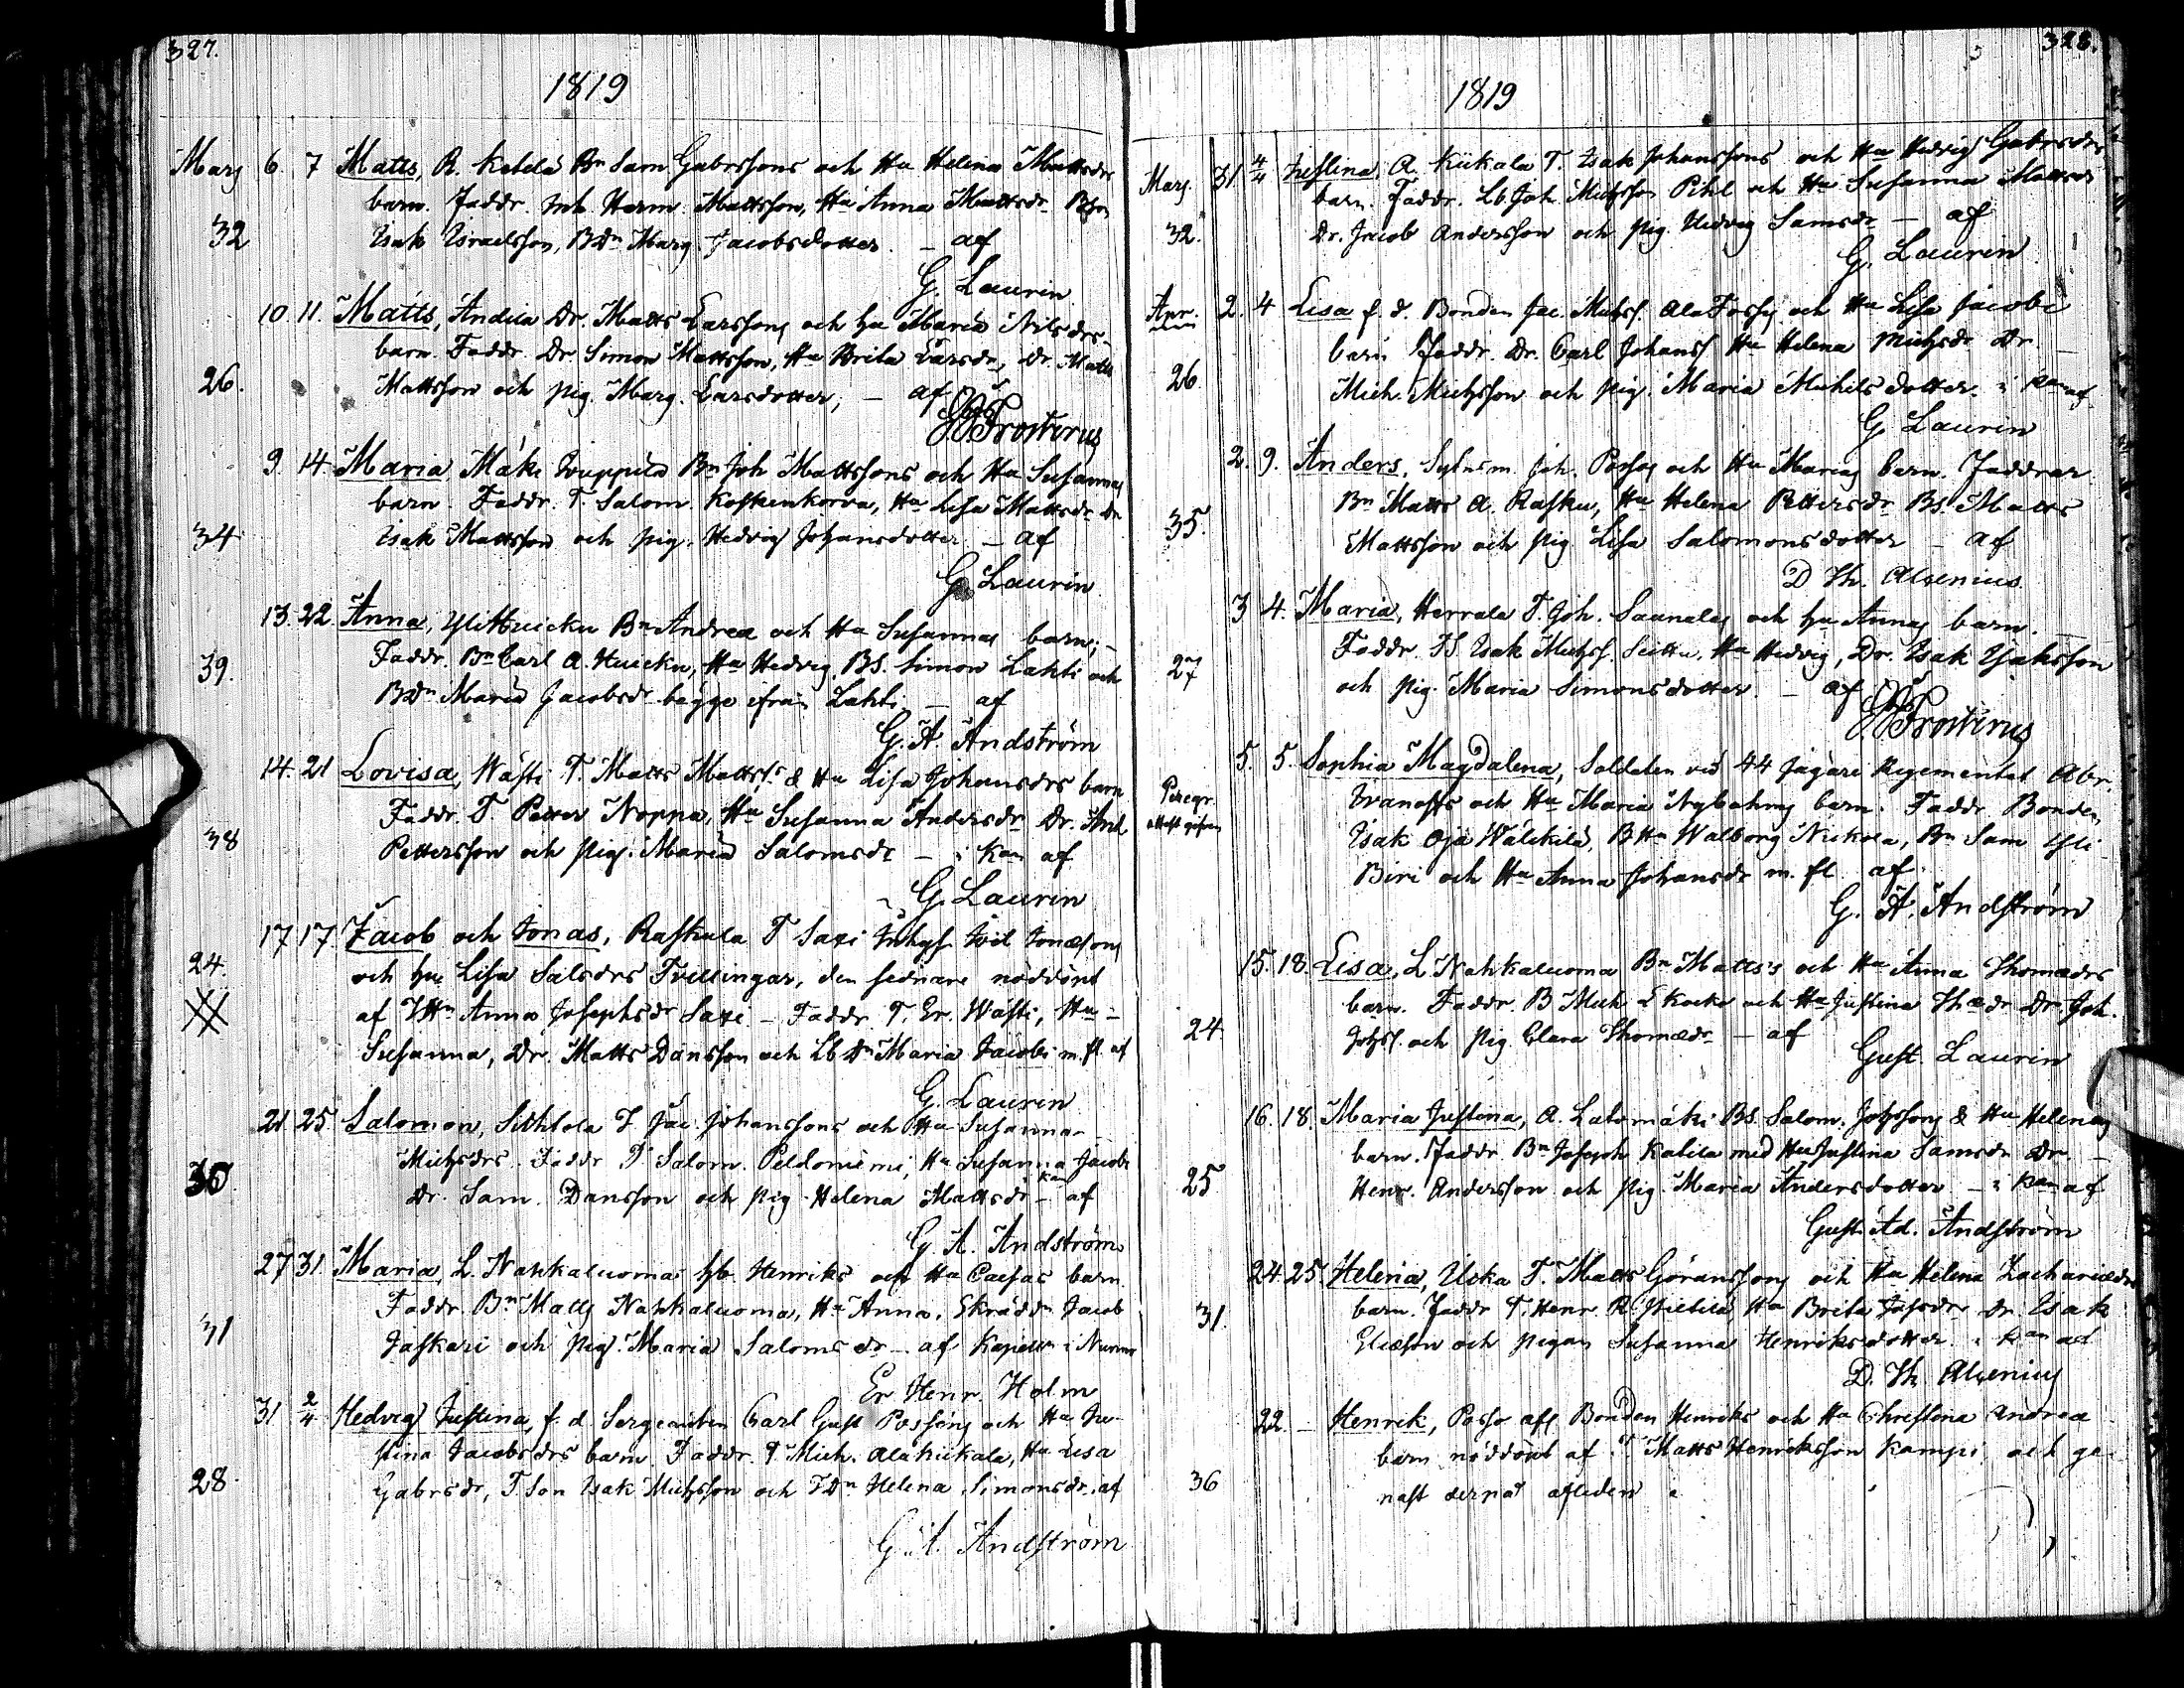 327.
1819
Marg 6. 7 Matts, R. Ketola Bn Sam Gabrssons och Hu Helena Mattsdrs
barn. Faddr. Inh. Herm. Mattsson, Hu Anna Mattsdr
32 Isak Israelsson, BDn Marg. Jacobsdotter. – af
G. Laurin
10 11. Matts, Andila Dr. Matts Larssons och hu Maria Nilsdrs
barn. Faddr. Dr Simon Mattsson, Hu Brita Larsdr, Dr. Matts
26. Mattsson och pig. Marg. Larsdotter, – af
Frosterus
9 14. Maria, Mäki Bn Joh Mattssons och Hu Susannas
barn. Faddr. T. Salom. Koskenkorva, Hu Lisa Mattsdr Dr
34 Isak Mattsson och pig. Hedvig Johansdotter – af
G. Laurin
13. 22. Anna, Yli Huicku Bn Andrea och Hu Susannas barn; –
39. Faddr. Bn Carl A. Huicku, Hu Hedvig, BS. Simon Lahti och
BDn Maria Jacobsdr begge ifrån Lahti – af
G. A. Andström
14. 21 Lovisa, Wästi T. Matts Matts & Hu Lisa Johansdrs barn
Faddr. T. Petter Noppa, Hu Susanna Andersdr Dr. And.
38 Pettersson och pig. Maria Salomsdr – i Kan af
G. Laurin
17 17. Jacob och Jonas, Raskula T Saxi
24. och hu Lisa Salsdrs Tvillingar, den sednare nöddöpt
af Anna Josephsdr Saxi – Faddr. T. Er. Wästi, Hu –
Susanna, Dr. Matts Dansson och Lb Dn Maria Jacobs m. fl. af
G. Laurin
21 25. Salomon, T. Jac. Johanssons och Hu Susanna
Michsdrs. Faddr T. Salom. Peldoniemi, Hu Susanna Jacobs
30 Dr. Sam. Dansson och pig. Helena Mattsdr – i Kan af
G. A. Andström
27 31. Maria, L. Nahkaluoma Henriks och Hu Caisas barn
Faddr. Bn Matts Nahkaluoma, Hu Anna, Skräddn Jacob
31 Jaskari och pig. Maria Salomsdr – af Kapelln i Nurmo
Er. Henr. Holm
31 2/4 Hedvig Justina, f. d. Sergeanten Carl Gust Possens och Hu Ju-
stina Jacobsdrs barn Faddr. T. Mich. Alakiikala, Hu Lisa
28. Gabrsdr, T. Son Isak Michsson och TDn Helena Simonsdr. af
G. A. Andström
328.
1819
Mars. 31 4/4 Justina, A. Kiikala T. Isak Johanssons och Hu Hedvig Gabrsdrs
barn. Faddr. Lb. Joh. Michsson Pihl och Hu Susanna Mattsdr
32. Dr. Jacob Andersson och pig. Hedvig Samsdr – af
G. Laurin
Apr. 2. 4 Lisa f. d. Bonden Jac. Michss. Ala Fossi och Hu Lisa Jacobs
barn Faddr. Dr. Carl Johanss Hu Helena Michsdr Dr. –
26. Mich. Michsson och pig. Maria Michelsdotter i Kan af
G. Laurin
2. 9. Anders, Joh. Possos och Hu Marias barn. Faddrar
Bn Matts A. Rasku, Hu Helena Pettersdr Bs. Matts
35. Mattsson och pig. Lisa Salomonsdotter – af
D. Th. Alcenius
3 4. Maria, Herrala T. Joh. Saanalas och hu Annas barn. –
Faddr. TS. Isak Michss. Hu Hedvig, Dr. Isak Isaksson
27 och pig. Maria Simonsdotter. – af
Frosterus
5. 5. Sophia Magdalena, Soldaten vid 44 Jägare Regementet Abr.
Peregr. Ivanoffs och Hu Maria Nybohms barn. Faddr. Bonden
Isak Oja Wälikilä, BHn Walborg Nickola, Bn Sam Yli
Biri och Hu Anna Johansdr m. fl. af
G. A. Andström
15. 18. Lisa, L. Nahkaluoma Bn Matts's och Hu Anna Thomædrs
barn. Faddr. B Mich Skocko och Hu Justina Thædr Dr. Joh.
24. Johss. och pig. Clara Thomædr – af
Gust. Laurin
16. 18. Maria Justina, A. Latomäki BS. Salom. Johssons & Hu Helenas
barn. Faddr. Bn Joseph Kalila med Hu Justina Samsdr Dr. –
25 Henr. Andersson och pig. Maria Andersdotter – i Kan af
Gust. Ad. Andström
24. 25. Helena, Ucka T. Matts Göranssons och Hu Helena Zachariædrs
barn. Faddr T. Henr. R. Pietilä, Hu Brita Johsdr Dr. Isak
31. Eliæson och pigan Susanna Henriksdotter i Kan af
D. Th. Alcenius
22. – Henrik, Posso afl. Bonden Henriks och Hu Christina Andrea
barn nöddöpt af T. Matts Henriksson Kampi, och ge-
36 nast derpå afliden.